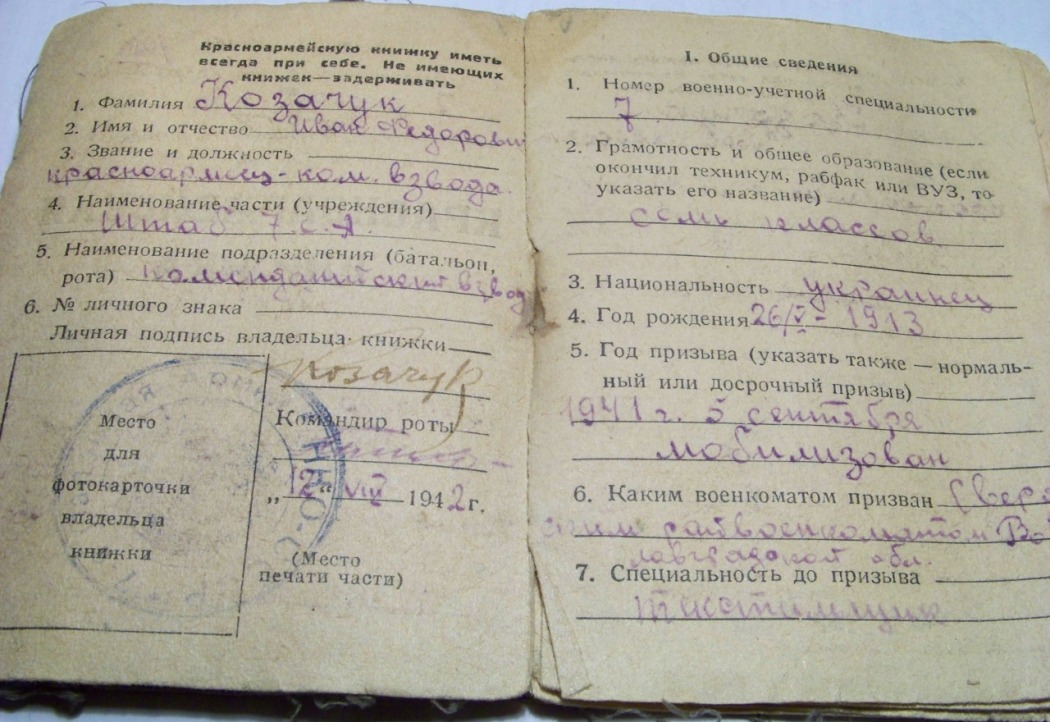 Красноармейскую книжку иметь
всегда при себе. Не имеющих
книжек—задерживать
1. Фамилия Козачук
2. Имя и отчество Иван Федорович
3. Звание и должность
красноармец-ком. взвода
4. Наименование части (учреждения)
Штаб 7.С.А.
5. Наименование подразделения (батальон,
рота) Комендантский взвод
6. № личного знака
Личная подпись владельца книжки
Козачук
Место
для
фотокарточки
владельца
книжки
Командир роты
„12“ VIII 1942 г.
(Место
печати части)
I. Общие сведения
1. Номер военно-учетной специальности
7
2. Грамотность и общее образование (если
окончил техникум, рабфак или ВУЗ, то
указать его название)
семь классов
3. Национальность украинец
4. Год рождения 26/V - 1913
5. Год призыва (указать также — нормаль-
ный или досрочный призыв)
1941 г. 5 сентября
мобилизован
6. Каким военкоматом призван
райвоенкоматом
обл.
7. Специальность до призыва
текстильщик